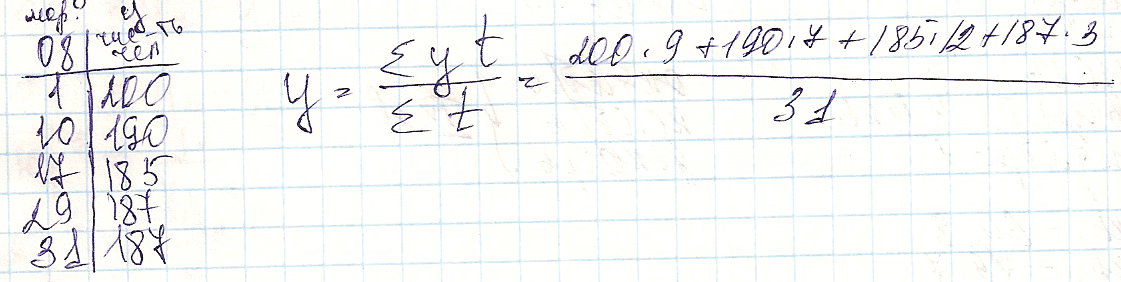 08 y
числ-ть
чел
1 200
10 190
17 185
29 187
31 187
y = Σyt / Σt = 200·9+190·7+185·12+187·3 / 31